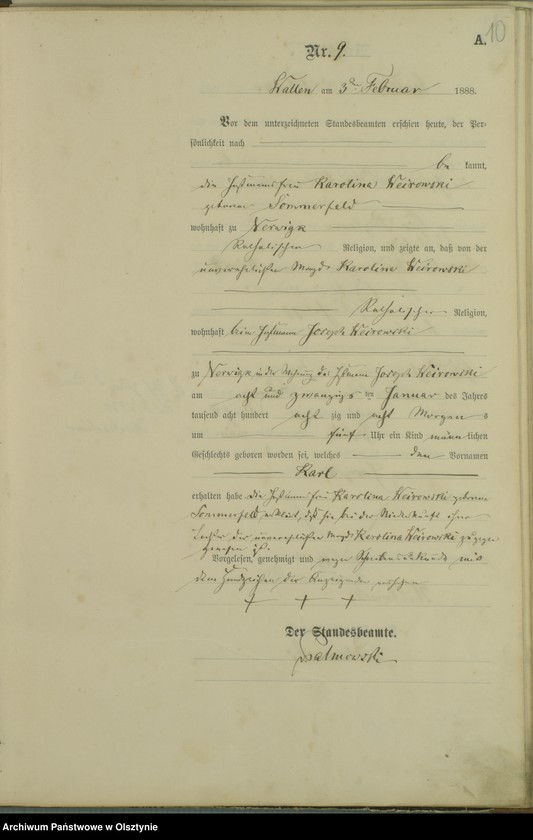 A. 10
Nr. 9.
Wallen am 3ten Februar 1888.
Vor dem unterzeichneten Standesbeamten erschien heute, der Per-
sönlichkeit nach
be kannt,
die Instmannsfrau Karolina Keirowski
geborene Sommerfeld
wohnhaft zu Nerwigk
Katholischer Religion, und zeigte an, daß von der
unverehelichten Magd Karolina Keirowski
Katholischer Religion,
wohnhaft beim Instmann Joseph Keirowski
zu Nerwigk in der Wohnung des Instmann Joseph Keirowski
am acht und zwanzigsten Januar des Jahres
tausend acht hundert acht zig und acht Morgens
um fünf Uhr ein Kind männlichen
Geschlechts geboren worden sei, welches den Vornamen
Karl
erhalten habe die Instmannsfrau Karolina Keirowski geborene
Sommerfeld erklärt, daß sie bei der Niederkunft ihrer
Tochter der unverehelichten Magd Karolina Keirowski zugegen
gewesen ist.
Vorgelesen, genehmigt und wegen Schreibensunkunde mit
dem Handzeichen der Anzeigende versehen
+ + +
Der Standesbeamte.
Archiwum Państwowe w Olsztynie